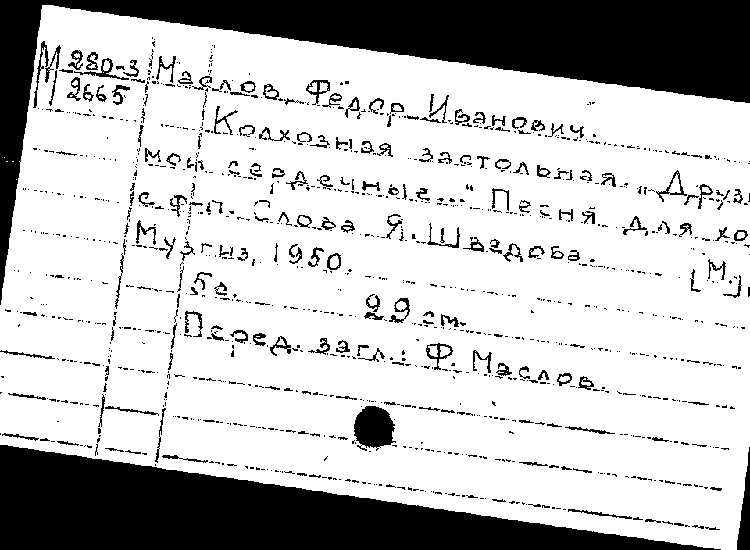 М 280-3
2665
Маслов, Фёдор Иванович.
Колхозная застольная. „Друзь
мои сердечные..." Песня для хо
с ф-п. Слова Я. Шведова. [М.],
Музгиз, 1950.
5 с. 29 см.
Перед. загл.: Ф. Маслов.